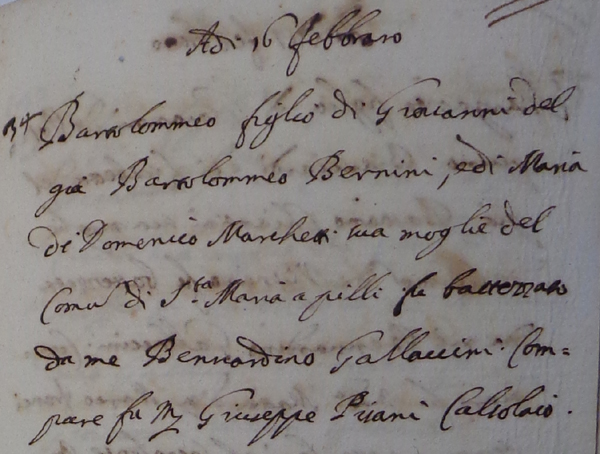 Adi 16 Febbraro
34 Bartolommeo figlio di Giovanni del
già Bartolommeo Bernini, e di Maria
di Domenico Marchetti sua moglie del
Comu di S.ta Maria a pilli fu battezzato
da me Bernardino Gallaccini. Com=
pare fu Giuseppe Pisani Calsolaio.